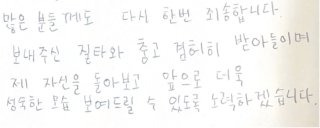 많은 분들께도 다시 한번 죄송합니다.
보내주신 질타와 충고 겸허히 받아들이며
제 자신을 돌아보고 앞으로 더욱
성숙한 모습 보여드릴 수 있도록 노력하겠습니다.